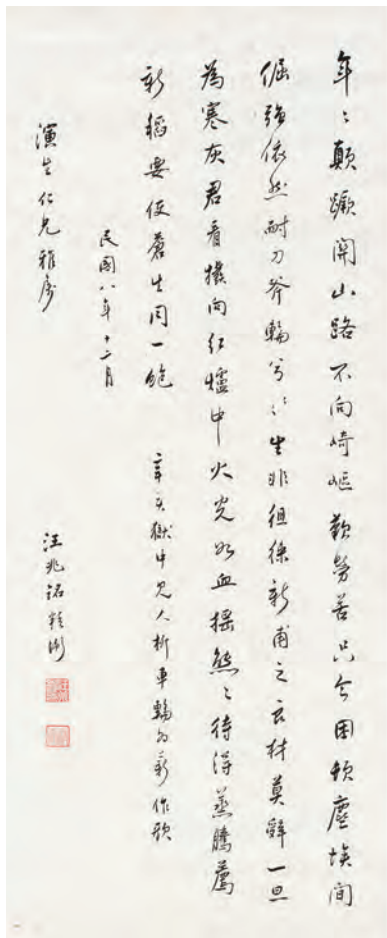 年〻顛蹶關山路不向崎嶇歎勞苦只今困頓塵埃間
倔強依然耐刀斧輪兮〻〻生非徂徠新甫之良材莫辭一旦
為寒灰君看擲向紅爐中火光如血搖熊〻待得蒸騰薦
新稻要使蒼生同一飽 辛亥獄中見人析車輪為薪作歌
民國八年十二月
演生仁兄雅屬 汪兆銘精衛